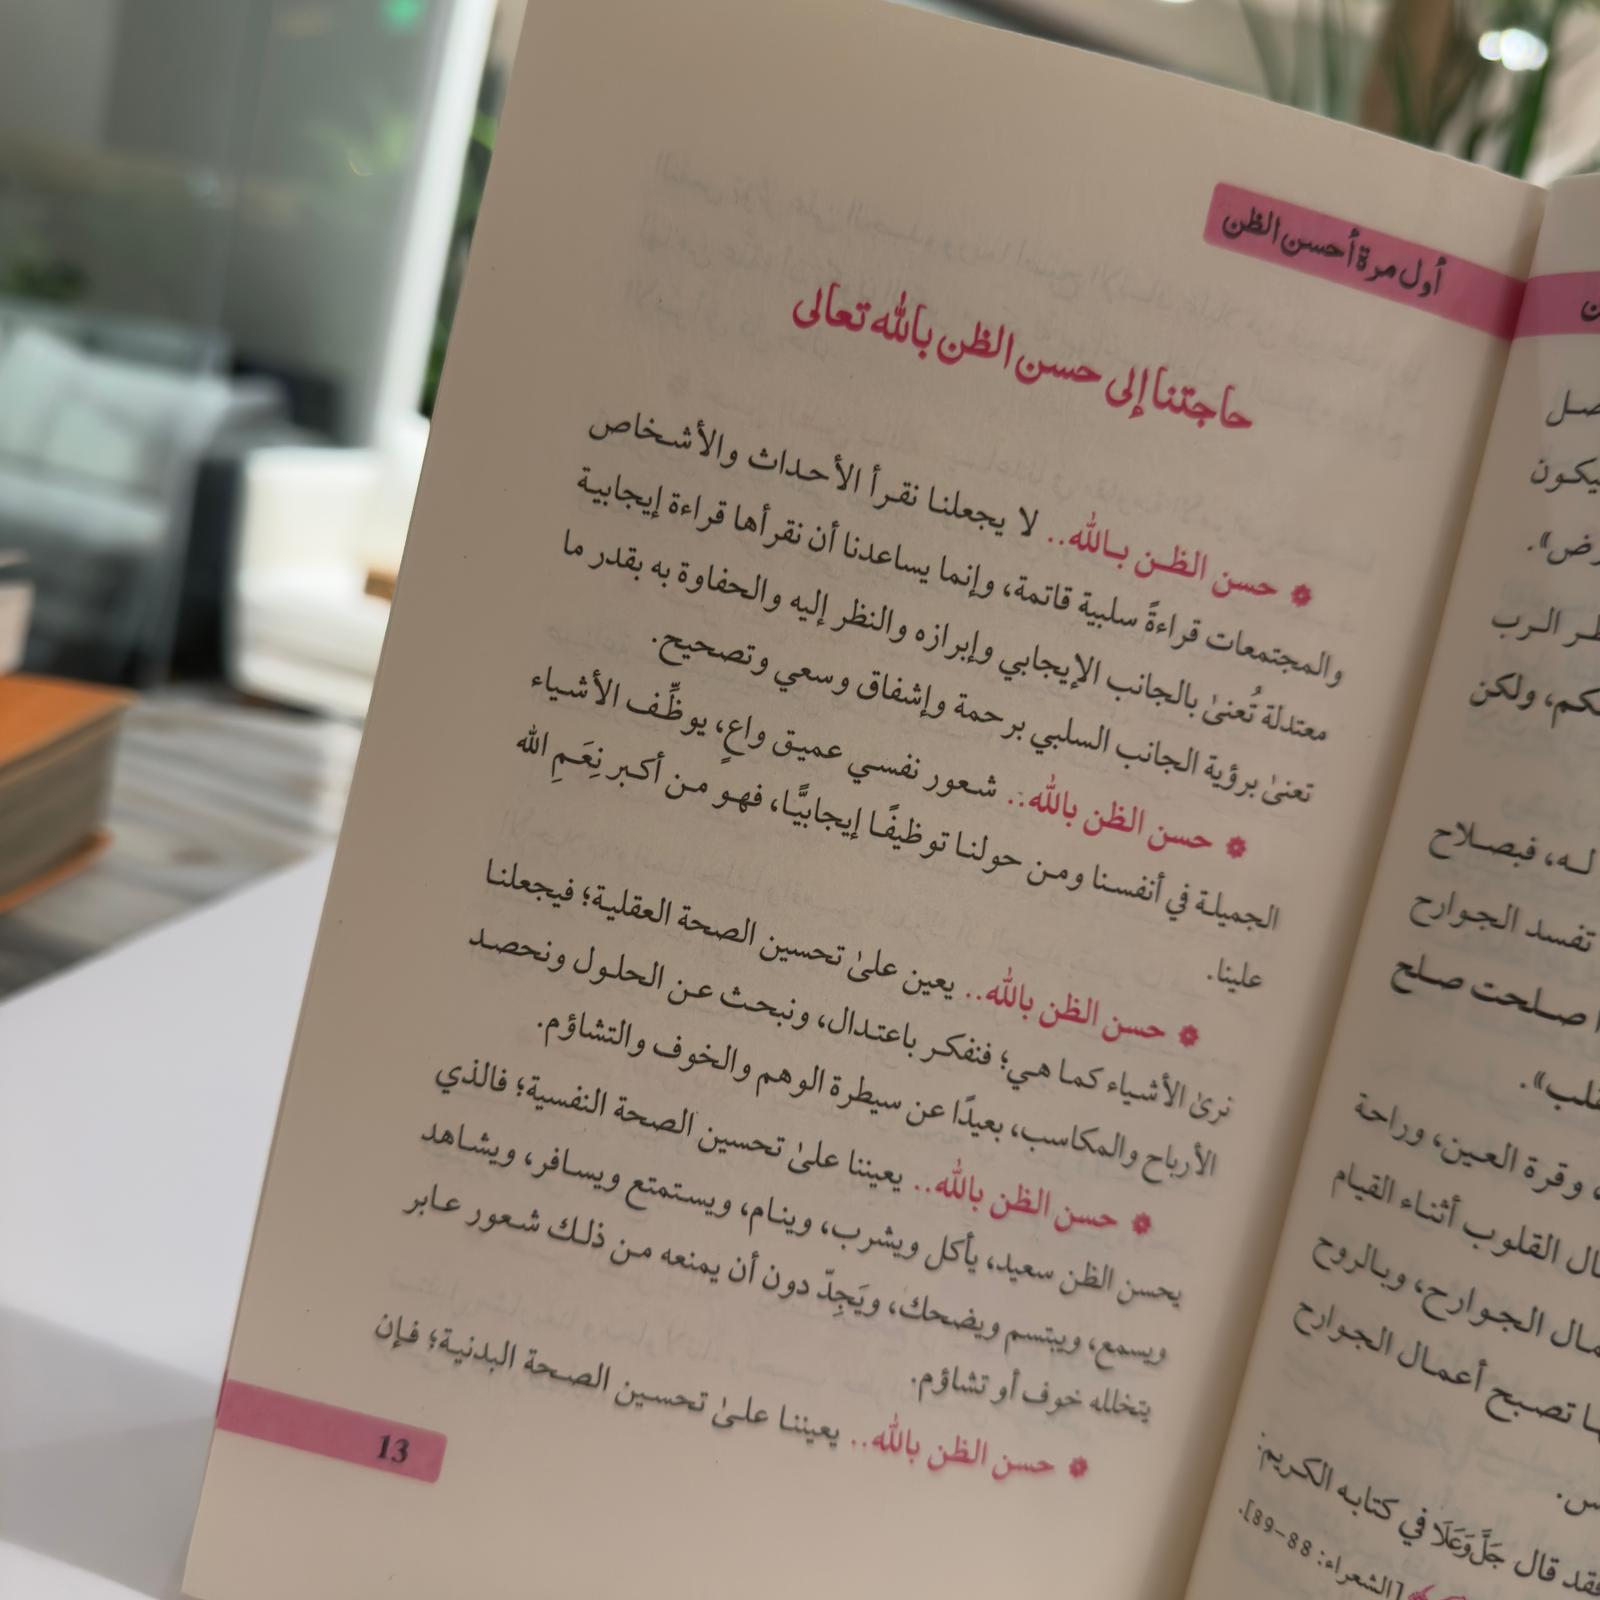 أول مرة أحسن الظن
حاجتنا إلى حسن الظن بالله تعالى
* حسن الظـن بـالله.. لا يجعلنـا نقـرأ الأحـداث والأشـخاص
والمجتمعات قراءةً سلبية قاتمة، وإنما يساعدنا أن نقرأها قراءة إيجابيـة
معتدلة تُعنىٰ بالجانب الإيجابي وإبرازه والنظر إليه والحفاوة به بقدر ما
تعنىٰ برؤية الجانب السلبي برحمة وإشفاق وسعي وتصحيح.
* حسن الظن بالله.. شـعور نفسـي عميـق واعٍ، يوظِّـف الأشـياء
الجميلـة في أنفسـنا ومـن حولنـا توظيفًـا إيجابيًّـا، فهـو مـن أكـبر نِعَـمِ الله
علينا.
* حسن الظن بالله.. يعين علىٰ تحسين الصحة العقليـة؛ فيجعلنـا
نرىٰ الأشـياء كمـا هـي؛ فنفكـر باعتـدال، ونبحـث عـن الحلـول ونحصـد
الأرباح والمكاسب، بعيدًا عن سيطرة الوهم والخوف والتشاؤم.
* حسن الظن بالله.. يعيننا علىٰ تحسين الصحة النفسية؛ فالذي
يحسن الظن سعيد، يأكل ويشرب، وينـام، ويسـتمتع ويسـافر، ويشـاهد
ويسمع، ويبتسم ويضحك، ويَجِدّ دون أن يمنعه مـن ذلـك شـعور عـابر
يتخلله خوف أو تشاؤم.
* حسن الظن بالله.. يعيننـا علـىٰ تحسـين الصـحة البدنيـة؛ فـإن
13
يكـون
الـرب
ولكن
لـه، فبصـلاح
تفسد الجـوارح
صـلحت صـلح
وقرة العـين، وراحة
القلوب أثنـاء القيام
الجـوارح، وبـالروح
تصـبح أعمـال الجـوارح
قال جَلَّ وَعَلَا في كتابـه الكـريم:
[الشعراء: 88-89].